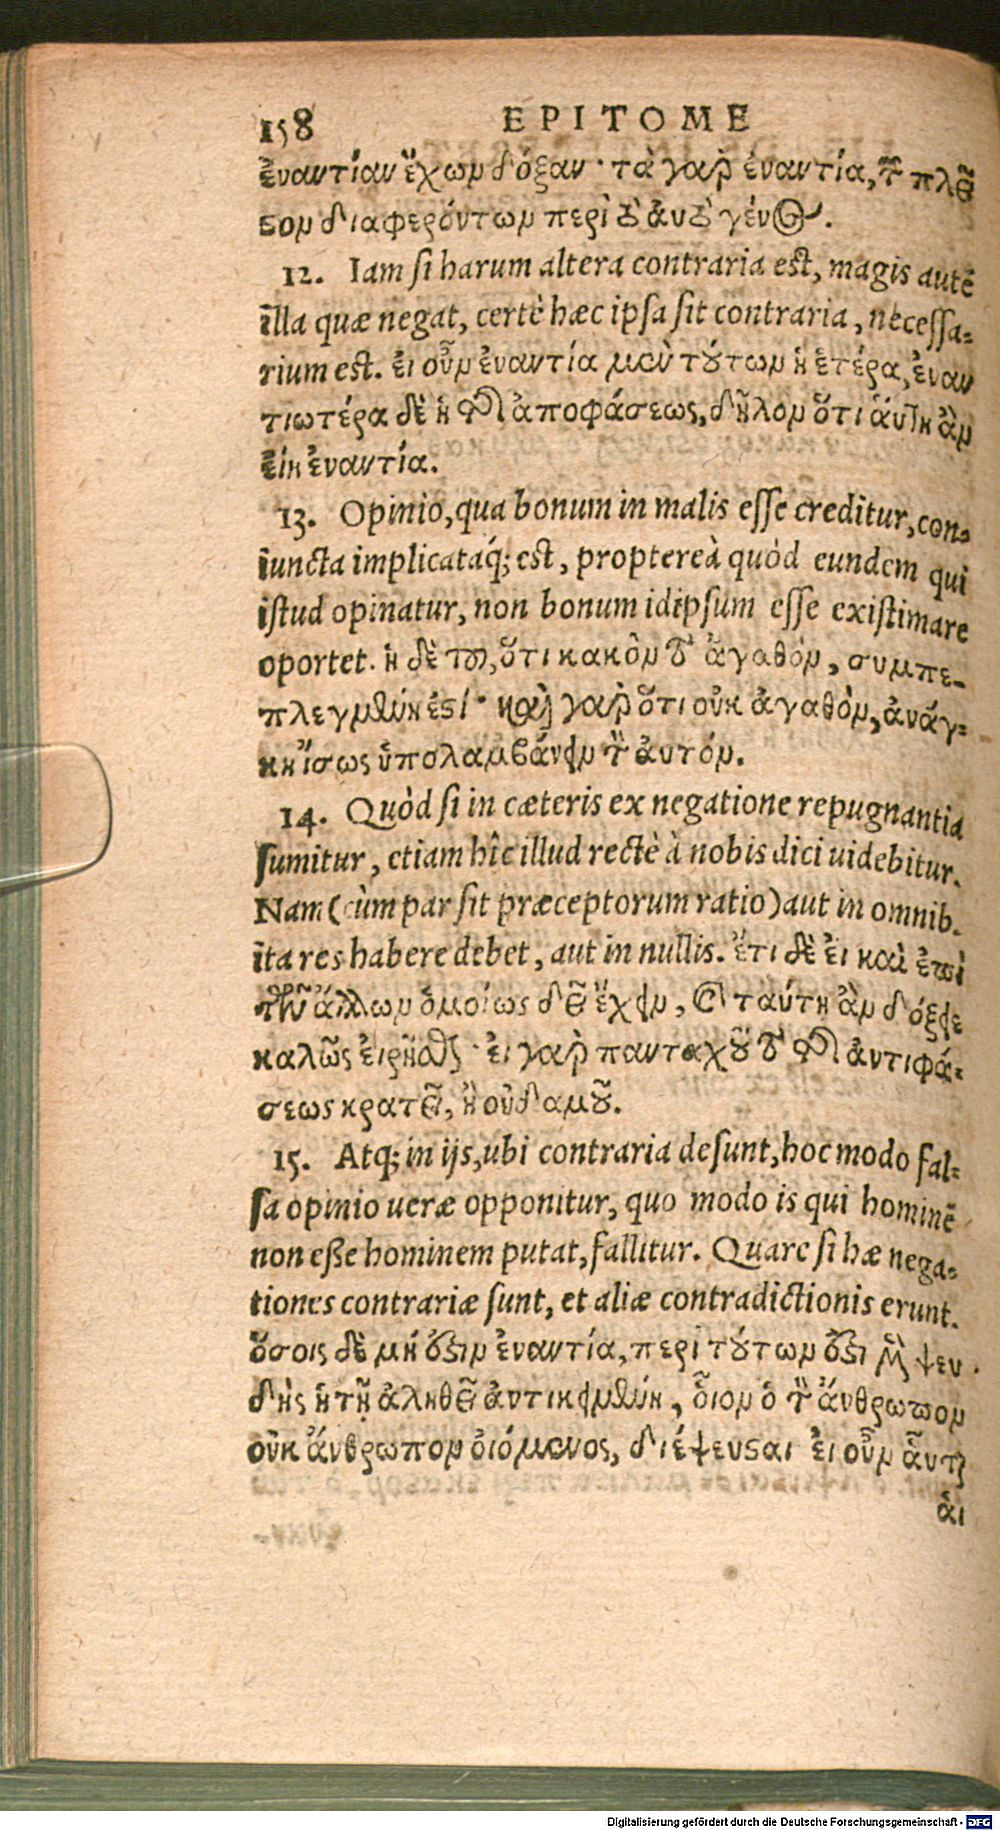 158 EPITOME
ἐναντίαν ἔχων δόξαν· τὰ γὰρ ἐναντία, τῶν πλεῖ
στον διαφερόντων περὶ τὸ αὐτὸ γένος.
12. Iam si harum altera contraria est, magis autẽ
illa quæ negat, certè hæc ipsa sit contraria, necessa-
rium est. εἰ οὖν ἐναντία μὲν τούτων ἡ ἑτέρα, ἐναν
τιωτέρα δὲ ἡ τῆς ἀποφάσεως, δῆλον ὅτι αὕτη ἂν
εἴη ἐναντία.
13. Opinio, qua bonum in malis esse creditur, con-
iuncta implicataq́; est, proptereà quòd eundem qui
istud opinatur, non bonum idipsum esse existimare
oportet. ἡ δὲ τοῦ, ὅτι κακὸν τὸ ἀγαθόν, συμπε-
πλεγμένη ἐστί· καὶ γὰρ ὅτι οὐκ ἀγαθὸν, ἀνάγ-
κη ἴσως ὑπολαμβάνειν τὸν αὐτόν.
14. Quòd si in cæteris ex negatione repugnantia
sumitur, etiam hîc illud rectè à nobis dici uidebitur.
Nam (cùm par sit præceptorum ratio) aut in omnib.
ita res habere debet, aut in nullis. ἔτι δὲ εἰ καὶ ἐπὶ
τῶν ἄλλων ὁμοίως δεῖ ἔχειν, καὶ ταύτη ἂν δόξειε
καλῶς εἰρῆσθαι· εἰ γὰρ πανταχοῦ τὸ τῆς ἀντιφά-
σεως κρατεῖ, ἢ οὐδαμοῦ.
15. Atq; in ijs, ubi contraria desunt, hoc modo fal-
sa opinio ueræ opponitur, quo modo is qui hominẽ
non eße hominem putat, fallitur. Quare si hæ nega-
tiones contrariæ sunt, et aliæ contradictionis erunt.
ὅσοις δὲ μή ἐστιν ἐναντία, περὶ τούτων ἐστι μὲν ψευ
δὴς ἡ τῇ ἀληθεῖ ἀντικειμένη, οἷον ὁ τὸν ἄνθρωπον
οὐκ ἄνθρωπον οἰόμενος, διέψευσται εἰ οὖν αὗται
αἱ
Digitalisierung gefördert durch die Deutsche Forschungsgemeinschaft - DFG